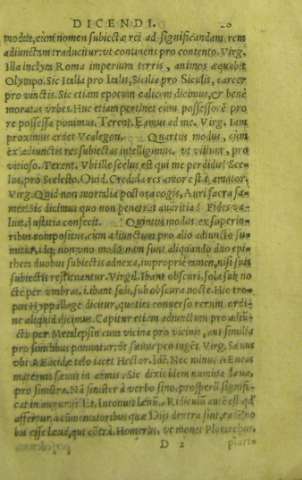 DICENDI. 20
modus, cùm nomen subiectæ rei ad significandam rem
adiunctam traducitur: vt continens pro contento. Virg.
Illa inclyta Roma imperium terris, animos æquabit
Olympo. Sic Italia pro Italis, Sicilia pro Siculis, carcer
pro vinctis. Sic etiam epotum calicem dicimus, & benè
moratas vrbes. Huc etiam pertinet cùm possessorē pro
re possessa ponimus. Terent. Eamus ad me. Virg. Iam
proximus ardet Vcalegon. Quartus modus, cùm
ex adiunctis res subiectas intelligimus, vt vitium, pro
vitioso. Terent. Vbi ille scelus est qui me perdidit? Sce-
lus, pro Scelesto. Ouid. Credula res amor est, amator.
Virg. Quid non mortalia pectora cogis, Auri sacra fa-
mes? Sic dicimus quo non penetrat auaritia? Fides va-
luit, Iustitia confecit. Quintus modus ex superio-
ribus compositus, cùm adiunctum pro alio adiuncto su-
mitur, idq; non vno modo: nam sunt aliquando duo epi-
theta duobus subiectis adnexa, impropriè omnia, nisi suis
subiectis restituantur. Virgil. Ibant obscuri sola sub no
cte per vmbras. Ibant soli, sub obscura nocte. Hic tro-
pus Hypallage dicitur, quoties conuerso rerum ordi-
ne aliquid dicimus. Capitur etiam adiunctum pro adiū-
cto per Metalepsin cùm vicina pro vicinis, aut similia
pro similibus ponuntur: vt sæuus pro ingēs. Virg. Sæuus
vbi Æacidæ telo iacet Hector. Idē Nec minus Æneas
maternis sæuus in armis. Sic dixit idem numine læua,
pro sinistra. Nā sinister à verbo sino, prosperū signifi-
cat in augurijs. Et Intonuit læuū. Ridiculū
affertur, à Dijs dextra sint,
bus esse læua, qui cōtrà Homerus, vt monet Plutarchus,
D 2 pluris